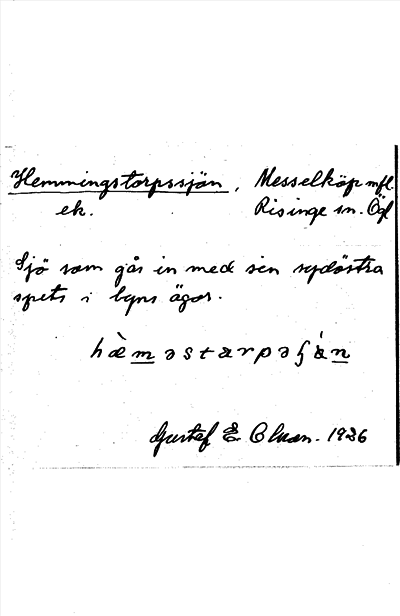 Hemmingstorpssjön, Messelköp mfl.
ek. Risinge sn. Ögl
Sjö som går in med sin sydöstra
spets i byns ägor.
hæ̀məstarpəʃån
Gustaf E Clvan. 1926